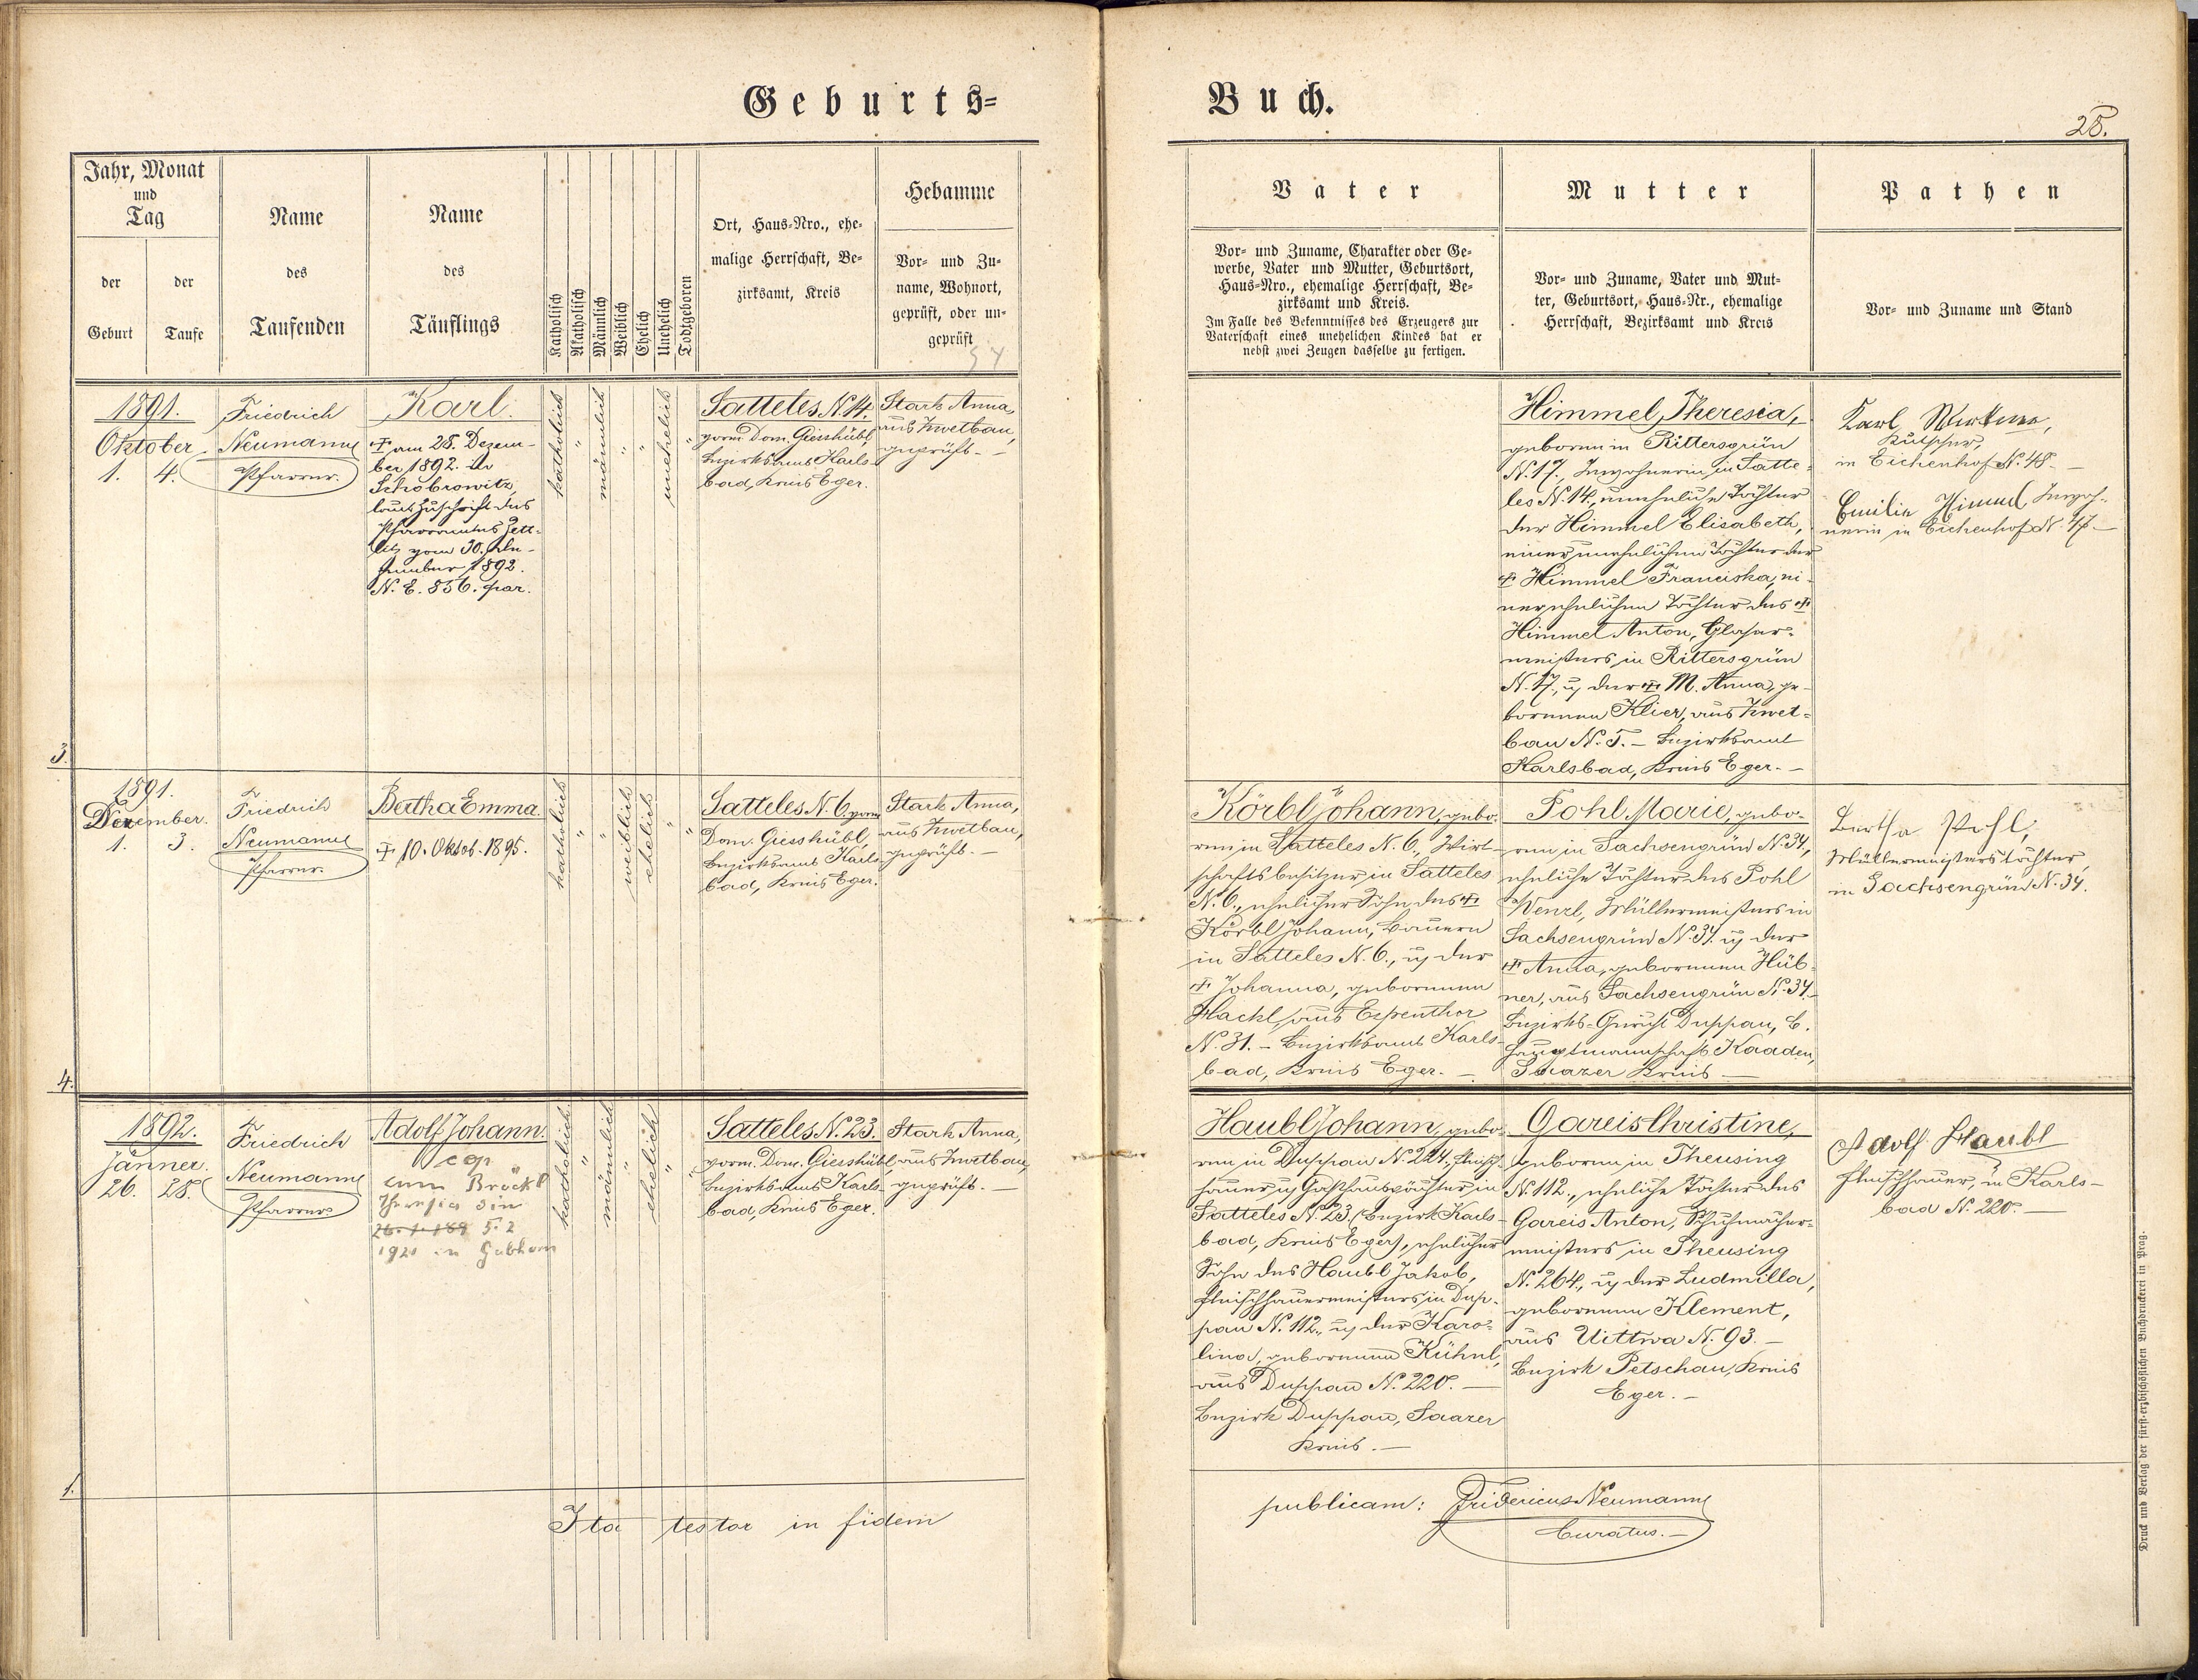 Geburts=
Buch.
25.
Jahr, Monat
und
Tag
der
Geburt
der
Taufe
Name
des
Taufenden
Name
des
Täuflings
Katholisch
Akatholisch
Männlich
Weiblich
Ehelich
Unehelich
Todtgeboren
Ort, Haus=Nro., ehe=
malige Herrschaft, Be=
zirksamt, Kreis
Hebamme
Vor= und Zu=
name, Wohnort,
geprüft, oder un=
geprüft
Vater
Vor= und Zuname, Charakter oder Ge=
werbe, Vater und Mutter, Geburtsort,
Haus=Nro., ehemalige Herrschaft, Be=
zirksamt und Kreis.
Im Falle des Bekenntnisses des Erzeugers zur
Vaterschaft eines unehelichen Kindes hat er
nebst zwei Zeugen dasselbe zu fertigen.
Mutter
Vor= und Zuname, Vater und Mut=
ter, Geburtsort, Haus=Nr., ehemalige
Herrschaft, Bezirksamt und Kreis
Pathen
Vor= und Zuname und Stand
3.
1891.
Oktober
1. 4.
Friedrich
Neumann
Pfarrer.
Karl.
† am 28. Dezem-
ber 1892. in
Schobrowitz,
laut Zuschrift des
Pfarramtes Zett-
litz vom 30. De-
zember 1892.
N. E. 856. par.
katholisch
"
männlich
"
"
unehelich
"
Satteles N. 14.
vorm. Dom. Giesshübl,
Bezirksamt Karls-
bad, Kreis Eger.
Stark Anna,
aus Zwetbau,
geprüft. -
Himmel Theresia,
geboren in Rittersgrün
N. 17., Inwohnerin in Satte-
les N. 14., uneheliche Tochter
der Himmel Elisabeth,
einer unehelichen Tochter der
† Himmel Franciska, ei-
ner ehelichen Tochter des †
Himmel Anton, Glaser-
meisters in Rittersgrün
N. 17., u. der † M. Anna, ge-
borenen Klier, aus Zwet-
bau N. 5. - Bezirksamt
Karlsbad, Kreis Eger. -
Karl
Kutscher,
in Eichenhof N. 48. -
Emilie Himmel Inwoh-
nerin in Eichenhof N. 47. -
4.
1891.
Dezember.
1. 3.
Friedrich
Neumann
Pfarrer.
Bertha Emma.
† 10. Oktob. 1895.
katholisch
"
"
weiblich
ehelich
"
"
Satteles N. 6. vorm.
Dom. Giesshübl,
Bezirksamt Karls-
bad, Kreis Eger.
Stark Anna,
aus Zwetbau,
geprüft. -
Körbl Johann, gebo-
ren in Satteles N. 6., Wirt-
schaftsbesitzer in Satteles
N. 6., ehelicher Sohn des †
Körbl Johann, Bauern
in Satteles N. 6., u. der
† Johanna, geborenen
Hackl, aus Espenthor
N. 31. - Bezirksamt Karls-
bad, Kreis Eger. -
Pohl Marie, gebo-
ren in Sachsengrün N. 34.,
eheliche Tochter des Pohl
Wenzl, Müllermeisters in
Sachsengrün N. 34. u. der
† Anna, geborenen Hüb-
ner, aus Sachsengrün N. 34. -
Bezirks-Gericht Duppau, B.
hauptmannschaft Kaaden,
Saazer Kreis -
Bertha Pohl,
Müllermeisterstochter,
in Sachsengrün N. 34.
1.
1892.
Jänner.
26. 28.
Friedrich
Neumann
Pfarrer
Adolf Johann.
cop
cum Bröckl
Theresia
26. 1. 189 5. 2
1921 in
katholisch
"
männlich
"
ehelich
"
Satteles N. 23.
vorm. Dom. Giesshübl,
Bezirksamt Karls-
bad, Kreis Eger.
Stark Anna,
aus Zwetbau,
geprüft. -
Haubl Johann, gebo-
ren in Duppau N. 224., Fleisch-
hauer u. Gasthauspächter in
Satteles N. 23. (Bezirk Karls-
bad, Kreis Eger), ehelicher
Sohn des Haubl Jakob,
Fleischhauermeisters in Dup-
pau N. 112., u. der Karo-
lina, geborenen Kühnl,
aus Duppau N. 220. -
Bezirk Duppau, Saazer
Kreis. -
Gareis Christine,
geboren in Theusing
N. 112., eheliche Tochter des
Gareis Anton, Schuhmacher-
meisters in Theusing
N. 264., u. der Ludmilla,
geborenen Klement,
aus Uittwa N. 93. -
Bezirk Petschau, Kreis
Eger. -
Adolf Haubl
Fleischhauer, in Karls-
bad N. 220. -
Ita testor in fidem
publicam: Fridericus Neumann
Curatus. -
Druck und Verlag der fürst=erzbischöflichen Buchdruckerei in Prag.